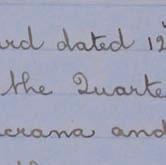 ard dated 12
the Quarte
crana and